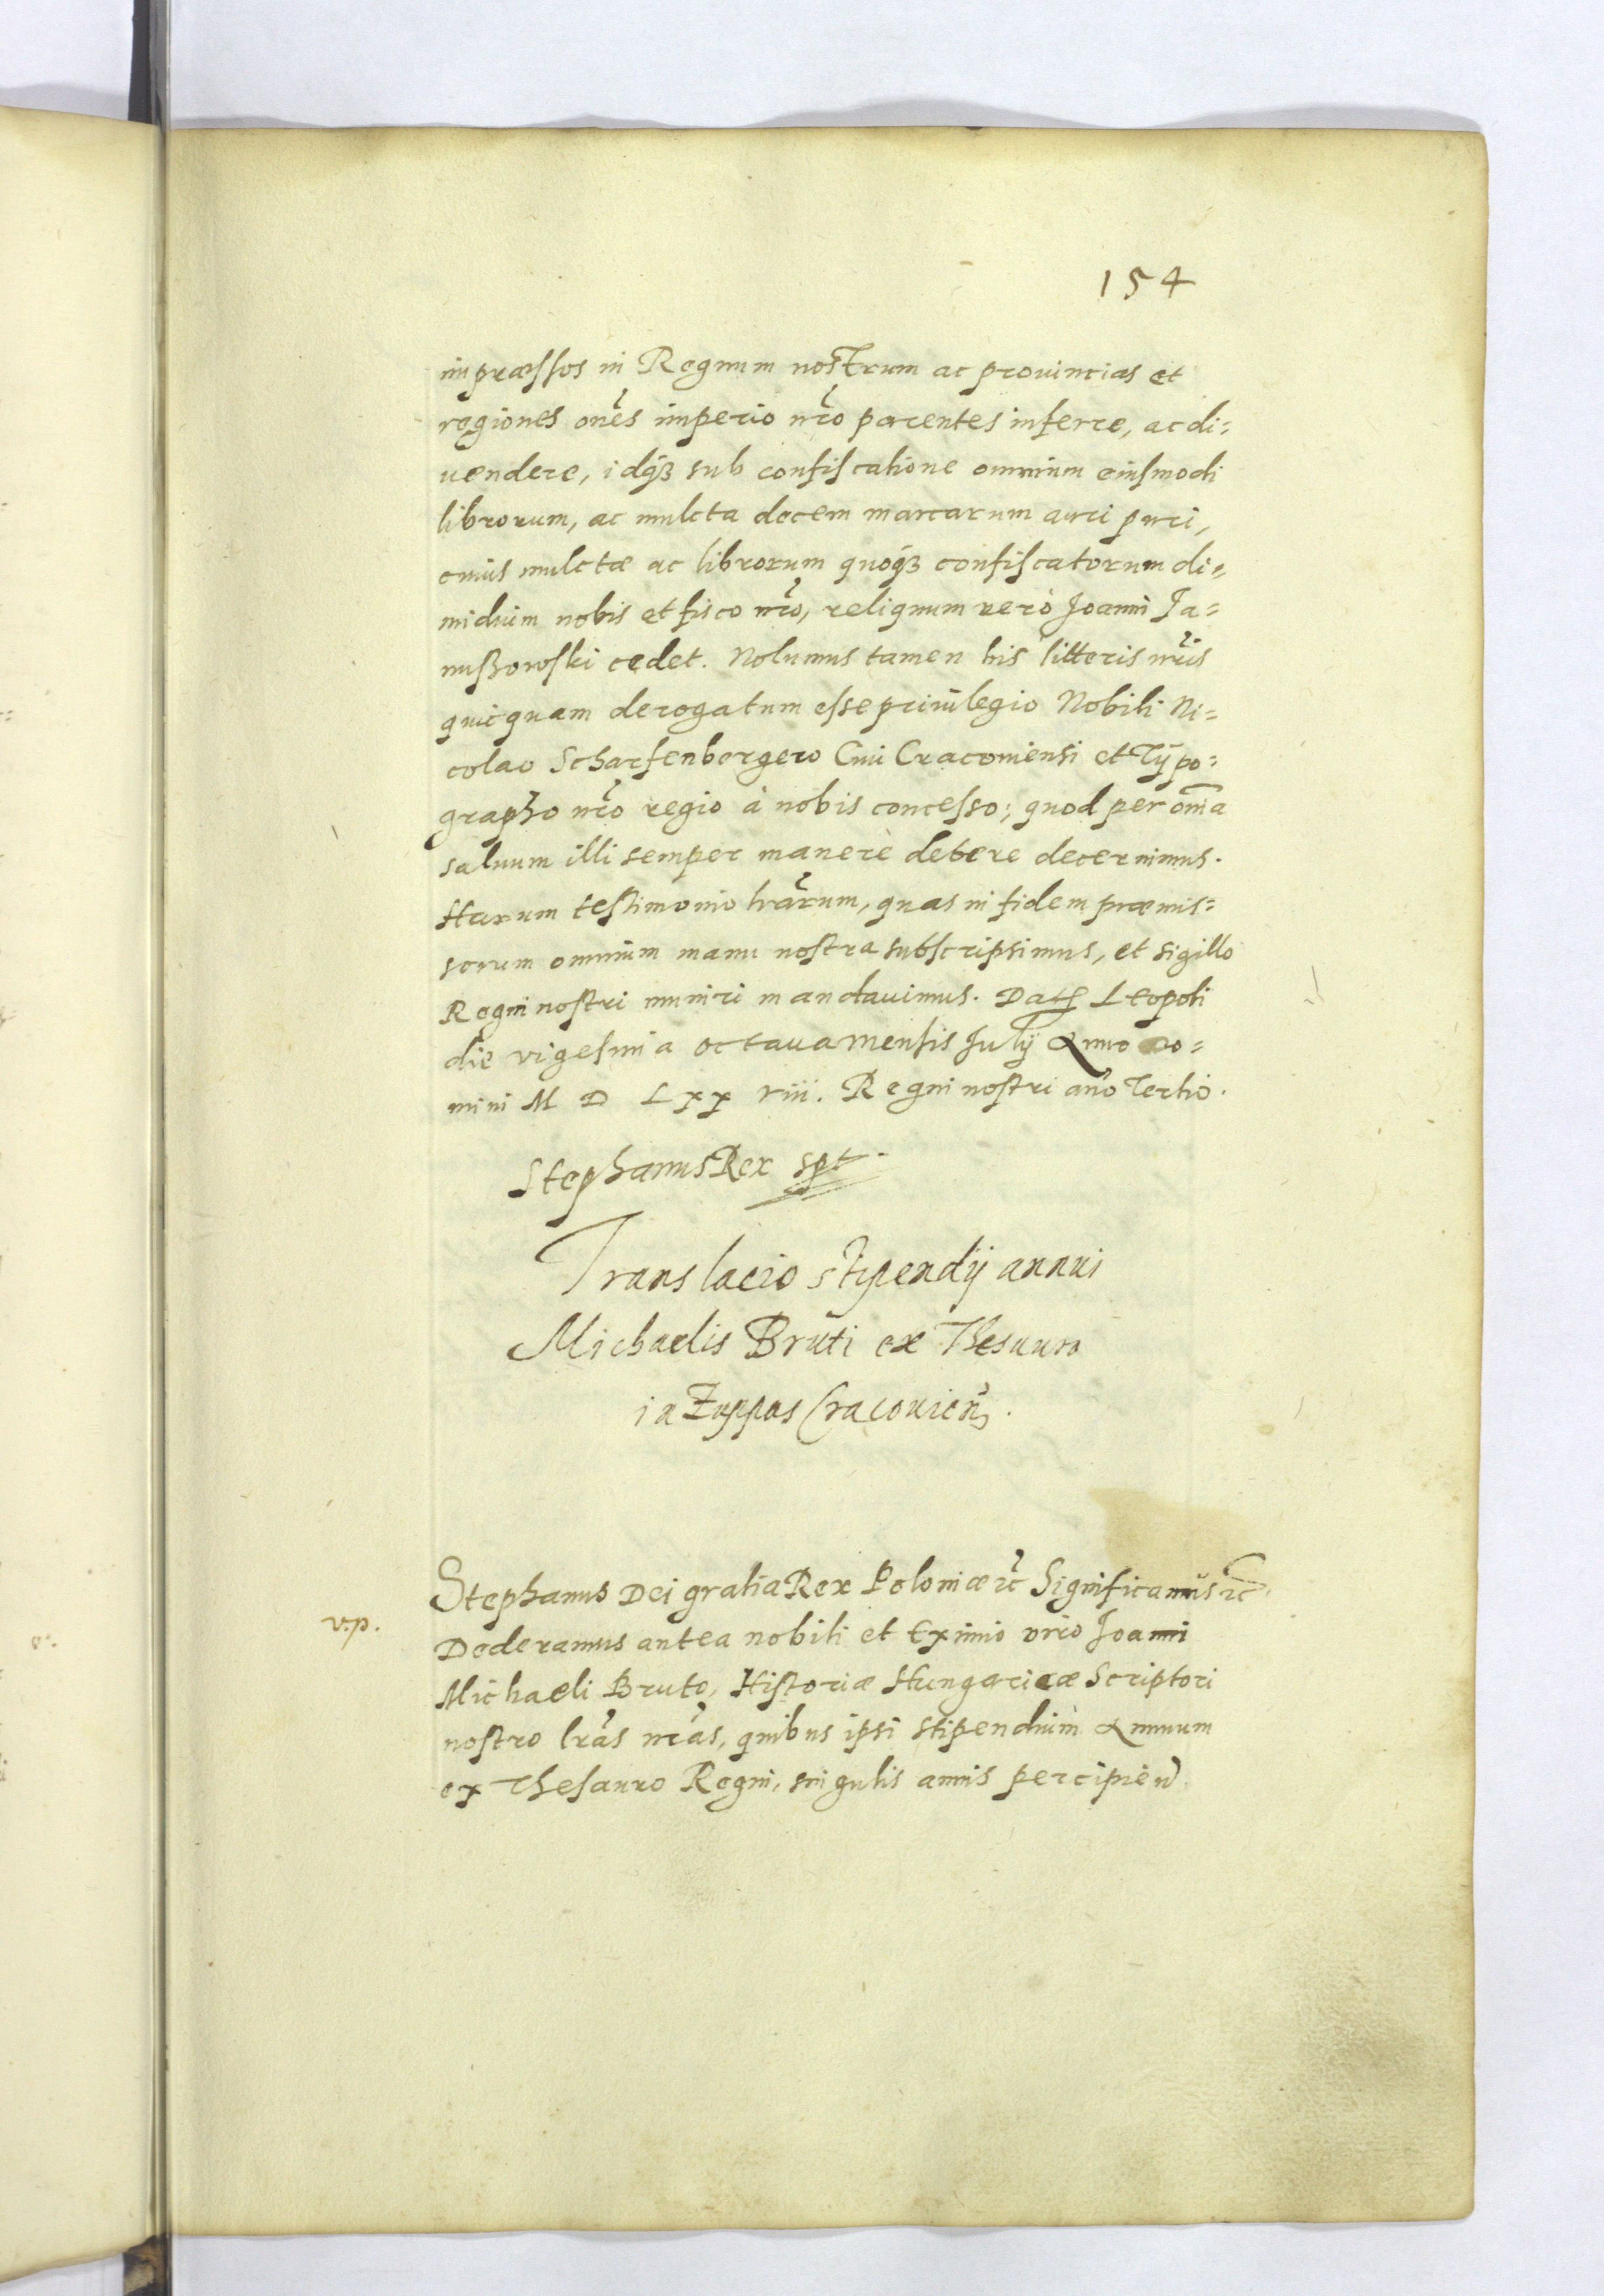 154
impræssos in Regnum nostrum ac prouincias et
regiones oñes imperio nr̃o parentes inferre, ac di=
uendere, idq3 sub confiscatione omnium eiusmodi
librorum, ac mulcta decem marcarum auri puri,
cuius mulctæ ac librorum quoq3 confiscatorum di=
midium nobis et fisco nr̃o, reliquum verò Joanni Ja=
nuszowski cedet. Nolumus tamen his litteris nr̃is
quicquam derogatum esse priuilegio Nobili Ni=
colao Scharfenbergero Ciui Cracouiensi et Typo=
grapho nr̃o regio à nobis concesso; quod per om̃a
saluum illi semper manere debere decernimus.
Harum testimonio lr̃arum, quas in fidem præmis=
sorum omnium manu nostra subscripsimus, et sigillo
Regni nostri muniri mandauimus. Datt Leopoli
die vigesima octaua mensis Julij Anno Do=
mini M D Lxx viii. Regni nostri año Tertio.
Stephanus Rex spt.
Translacio stipendij annui
Michaelis Bruti ex Thesauro
in Zuppas Cracouien̄.
Stephanus Dei gratia Rex Poloniæ ꝛc̃ Significamus ꝛc̃.
v.p.
Dederamus antea nobili et Eximio viro Joanni
Michaeli Bruto, Historiæ Hungaricæ Scriptori
nostro lr̃as nr̃as, quibus ipsi stipendium Annuum
ex Thesauro Regni, singulis annis percipien̄